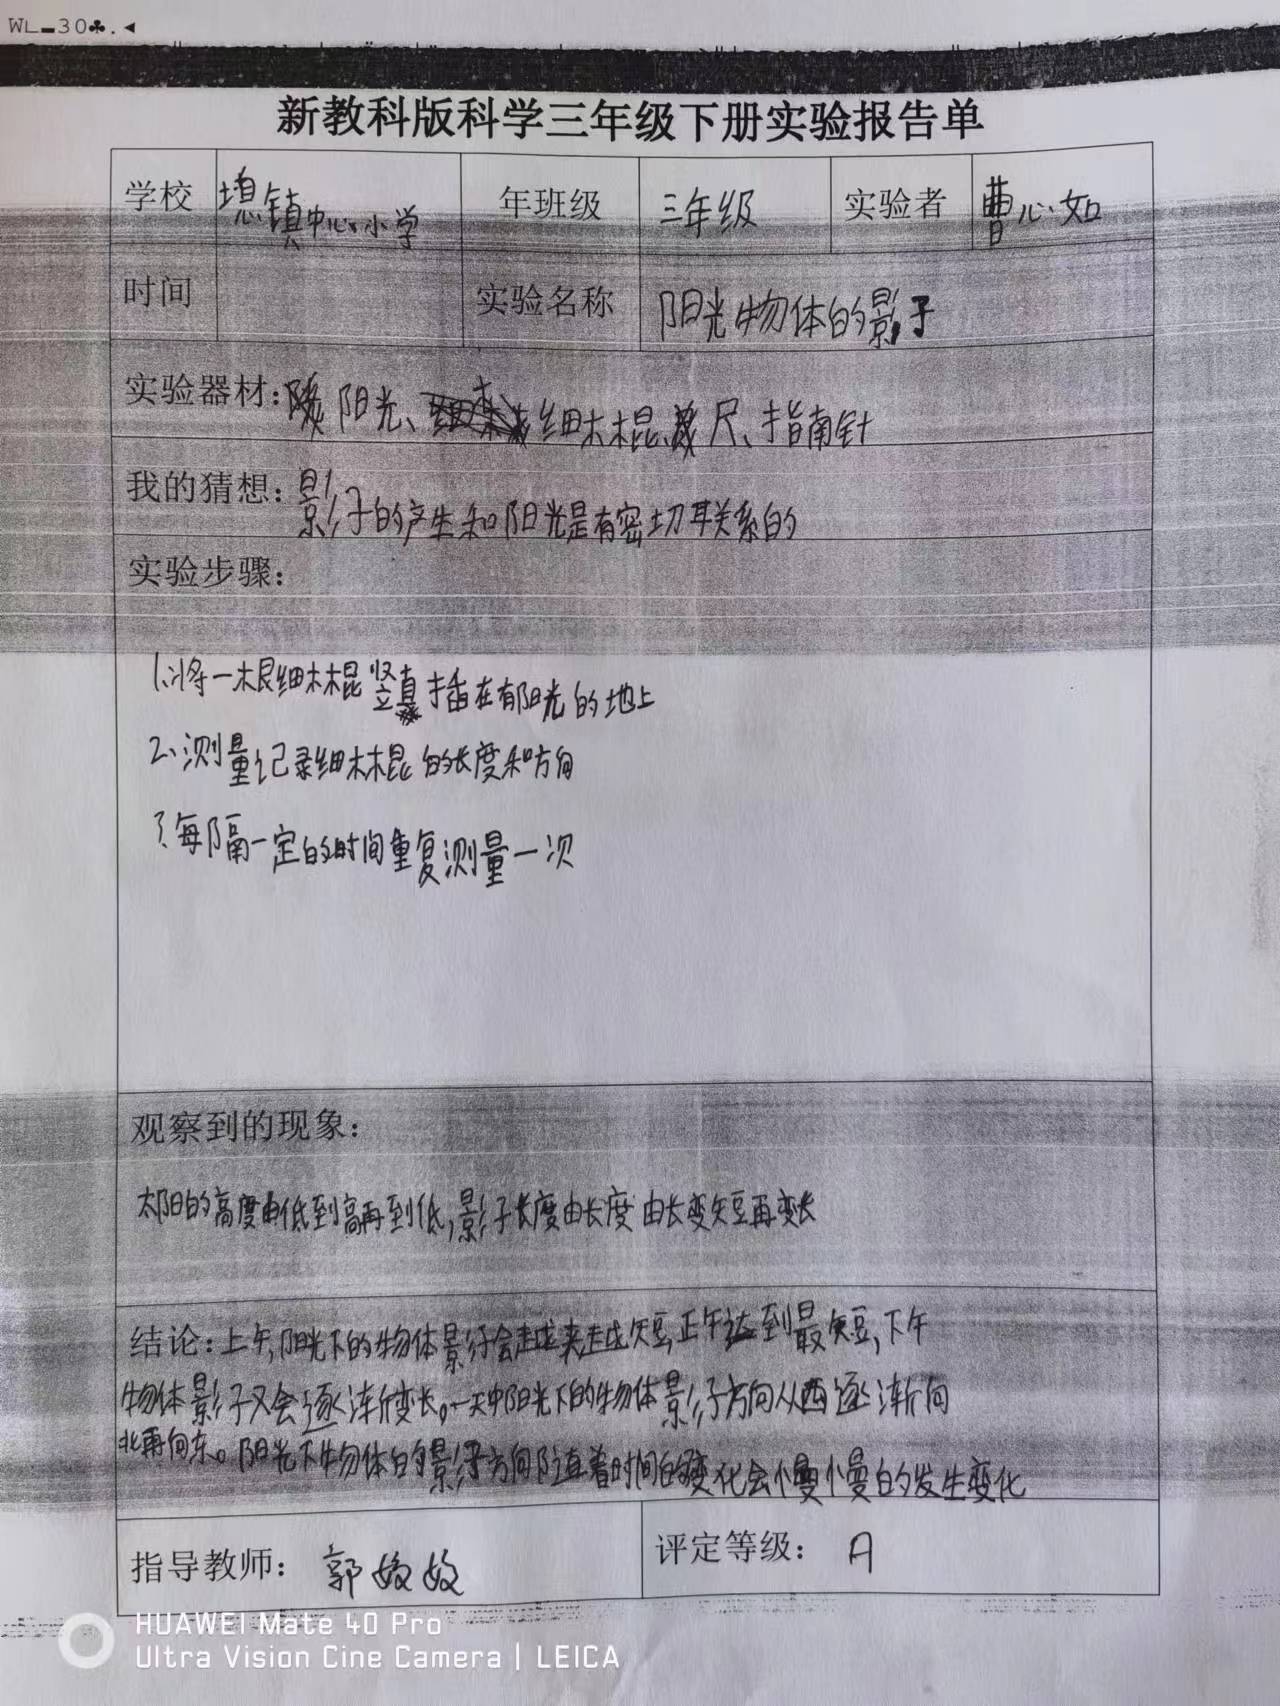 WL▬30♣.◄
新教科版科学三年级下册实验报告单
学校 镇中心小学 年班级 三年级 实验者 曹心如
时间 实验名称 阳光物体的影子
实验器材: 阳光、细木棍、尺、指南针
我的猜想: 影子的产生和阳光是有密切联关系的
实验步骤:
1.将一根细木棍竖直插在有阳光的地上
2.测量记录细木棍的长度和方向
3.每隔一定的时间重复测量一次
观察到的现象:
太阳的高度由低到高再到低,影子长度由长度由长变短再变长
结论: 上午,阳光下的物体影子会越来越短,正午达到最短,下午
物体影子又会逐渐变长。一天中阳光下的物体影子方向从西逐渐向
北再向东。阳光下物体的影子方向随着时间的变化会慢慢的发生变化
指导教师: 郭姣姣 评定等级: A
HUAWEI Mate 40 Pro
Ultra Vision Cine Camera | LEICA